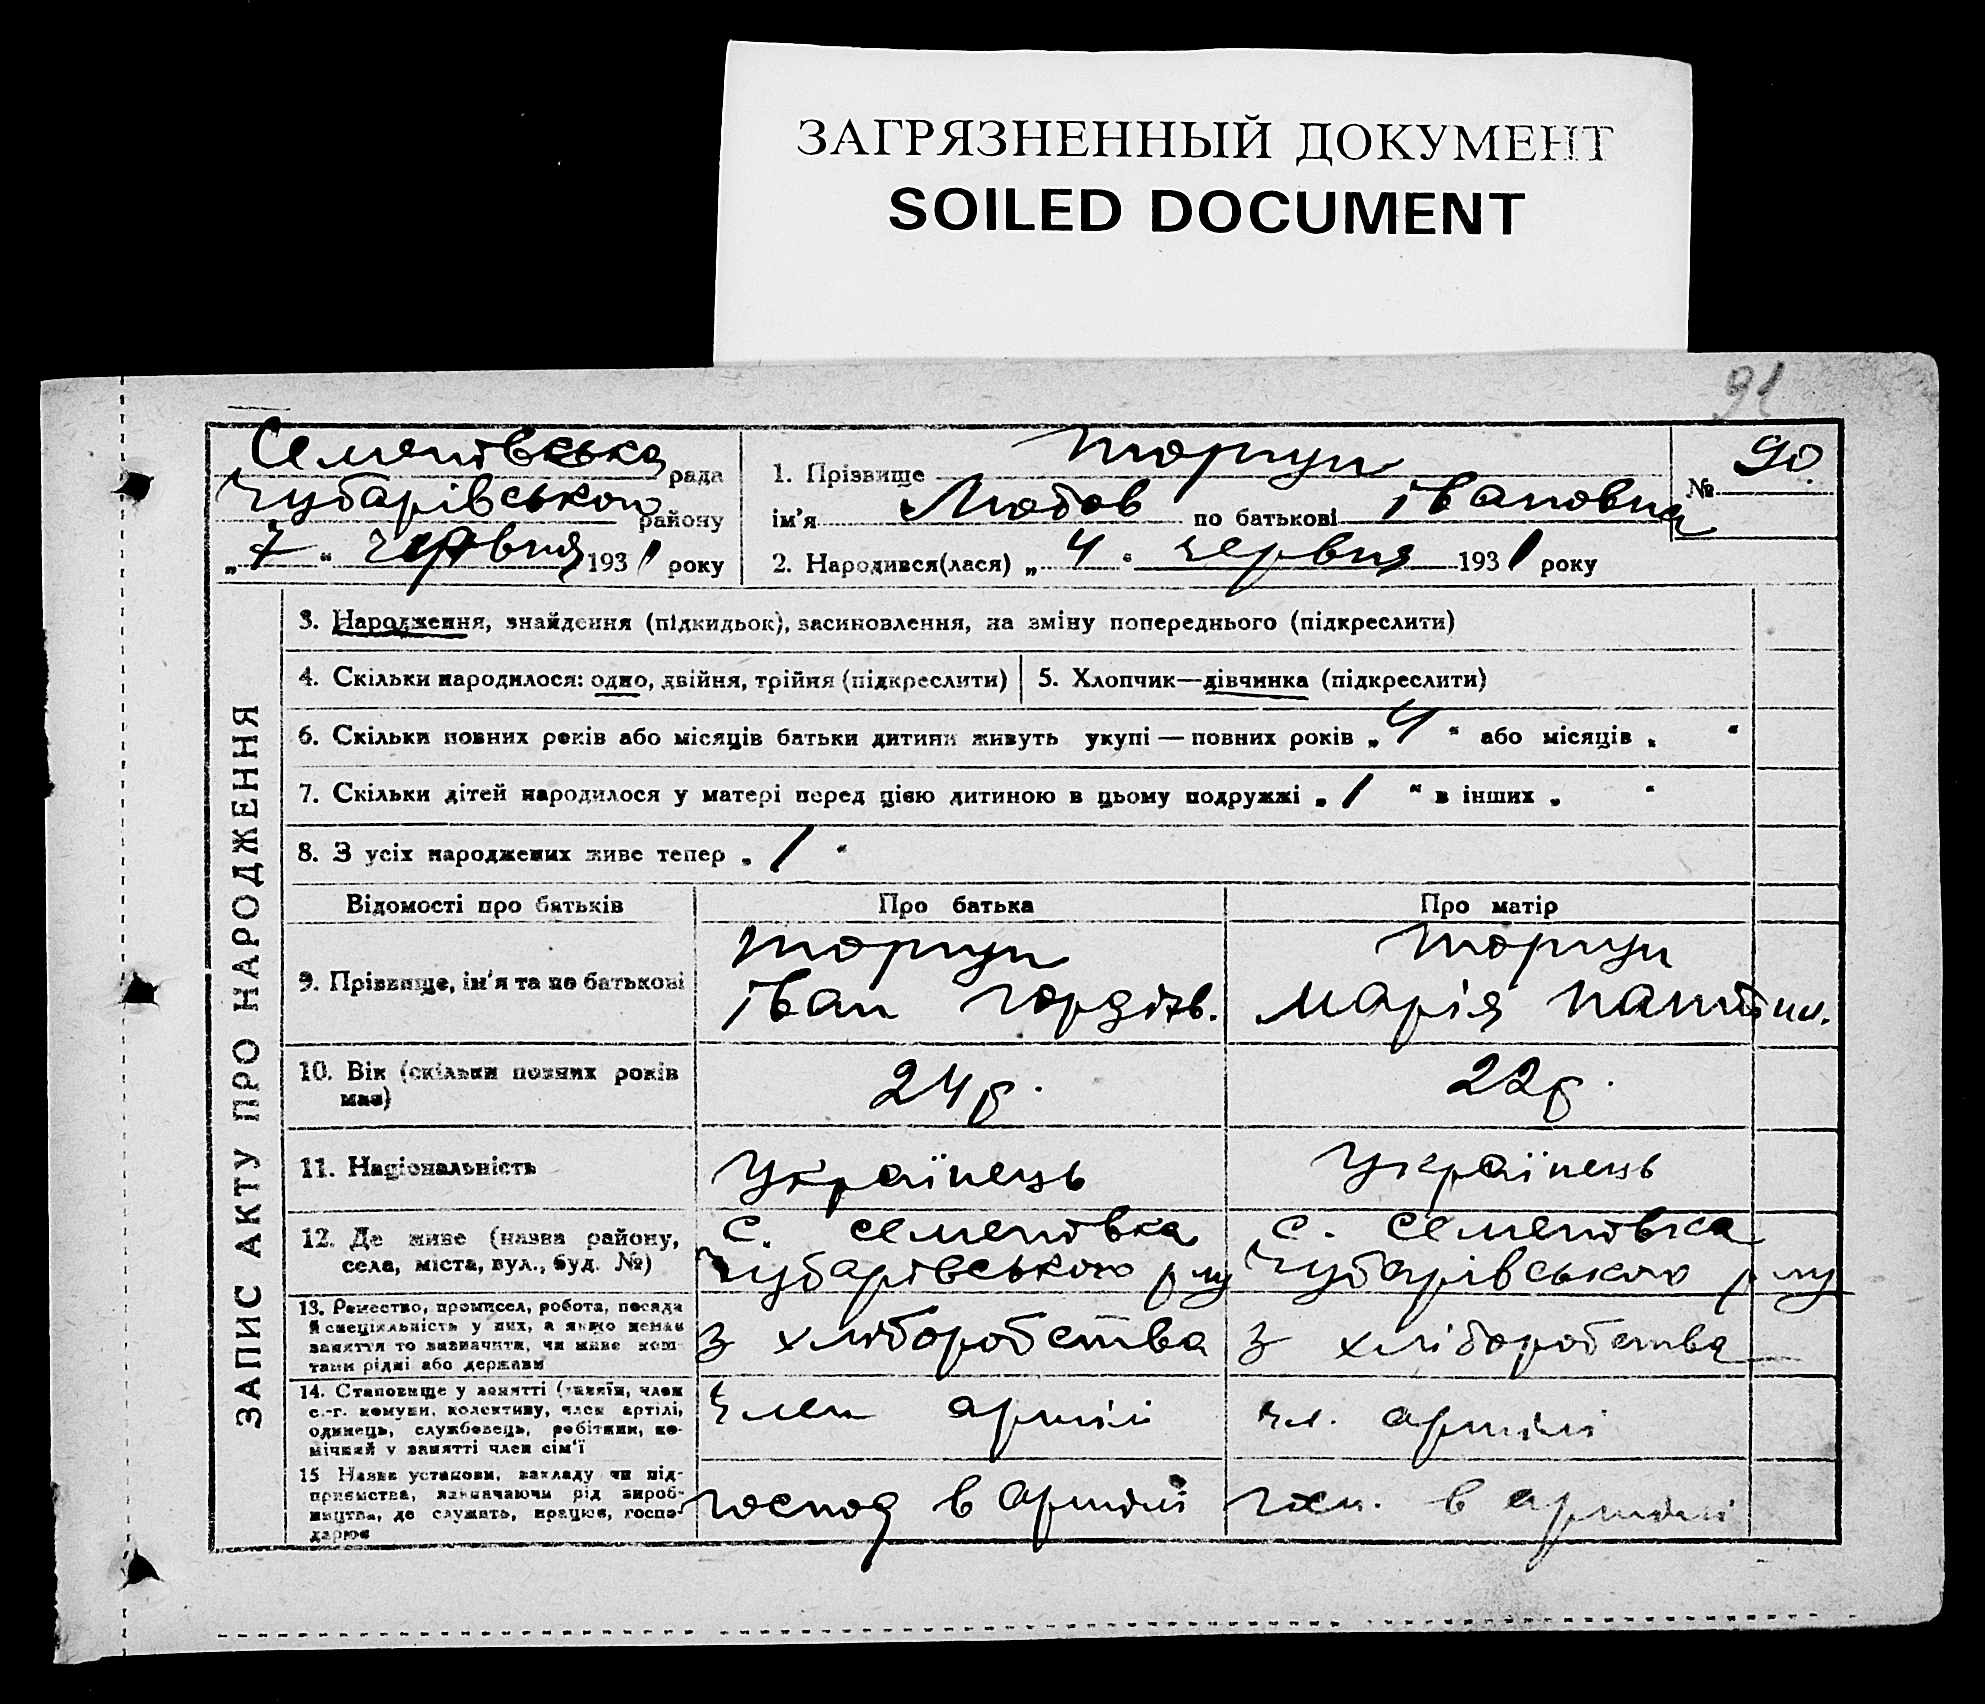 ЗАГРЯЗНЕННЫЙ ДОКУМЕНТ
SOILED DOCUMENT
91
Семенівська рада
Чубарівського району
„7“ червня 1931 року
1. Прізвище
ім'я Любов по батькові Івановна
2. Народився(лася) „4“ червня 1931 року
№ 90
ЗАПИС АКТУ ПРО НАРОДЖЕННЯ
3. Народження, знайдення (підкидьок), засиновлення, на зміну попереднього (підкреслити)
4. Скільки народилося: одно, двійня, трійня (підкреслити)
5. Хлопчик—дівчинка (підкреслити)
6. Скільки повних років або місяців батьки дитини живуть укупі — повних років „4“ або місяців „ “
7. Скільки дітей народилося у матері перед цією дитиною в цьому подружжі „1“ в інших „ “
8. З усіх народжених живе тепер „1“
Відомості про батьків
Про батька
Про матір
9. Прізвище, ім'я та по батькові
Іван Гордіїв.
Марія
10. Вік (скільки повних років має)
24 р.
22 р.
11. Національність
Українець
Українець
12. Де живе (назва району, села, міста, вул., буд. №)
с. Семенівка
Чубарівського р-ну
с. Семенівка
Чубарівського р-ну
13. Ремество, промисел, робота, посада
й спеціяльність у них, а якщо немає
заняття то визначити, чи живе кош-
тами рідні або держави
з хліборобства
з хліборобства
14. Становище у занятті (хазяїн, член
с.-г. комуни, колективу, член артілі,
одинець, службовець, робітник, по-
мічний у занятті член сім'ї
Член артілі
чл. артілі
15 Назва установи, закладу чи під-
приємства, зазначаючи рід вироб-
ництва, де служить, працює, госпо-
дарює
господ в артілі
гос. в артілі